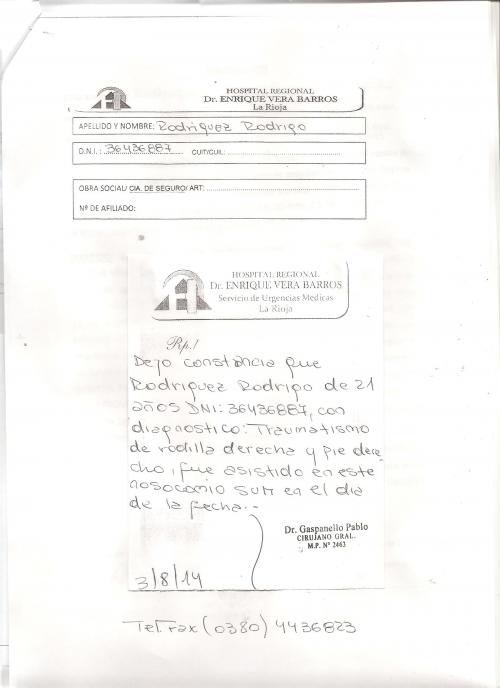 HOSPITAL REGIONAL
Dr. ENRIQUE VERA BARROS
La Rioja
APELLIDO Y NOMBRE: Rodriguez Rodrigo
D.N.I.: 36436887 CUIT/CUIL:
OBRA SOCIAL/ CIA. DE SEGURO/ ART:
Nº DE AFILIADO:
HOSPITAL REGIONAL
Dr. ENRIQUE VERA BARROS
Servicio de Urgencias Medicas
La Rioja
Rp./
Dejo constancia que
Rodriguez Rodrigo de 21
años DNI: 36436887, con
diagnostico: Traumatismo
de rodilla derecha y pie dere
cho, fue asistido en este
nosocomio SUM en el dia
de la fecha.-
Dr. Gaspanello Pablo
CIRUJANO GRAL.
M.P. Nº 2463
3/8/14
Tel.Fax (0380) 4436823